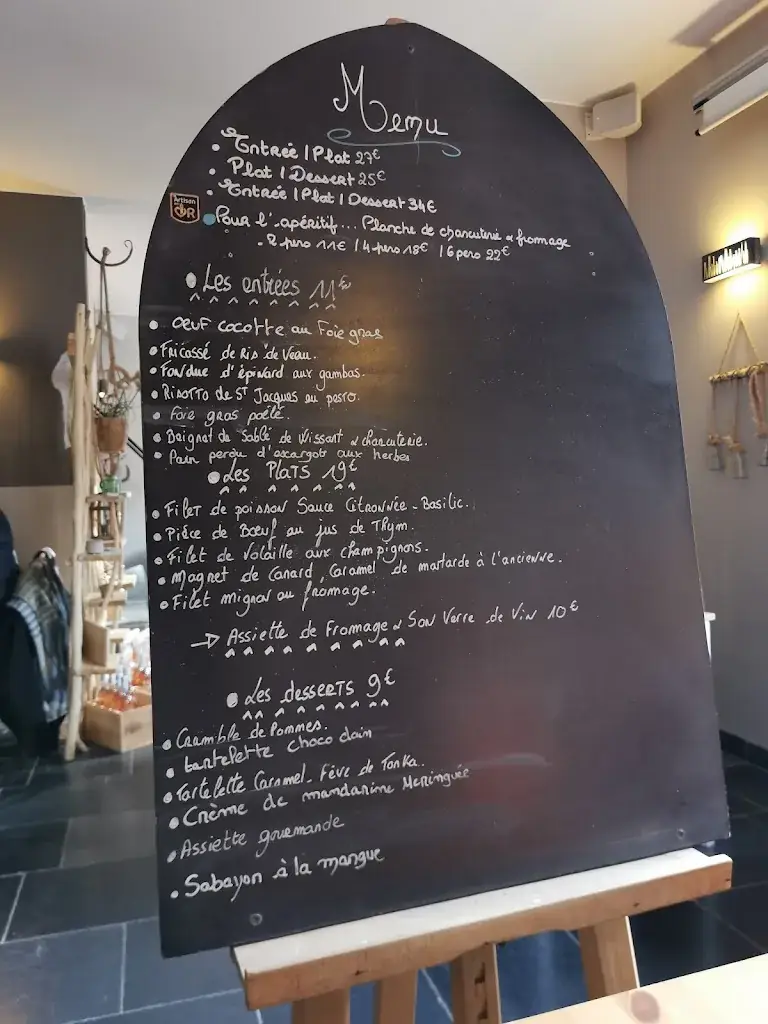 Menu
• Entrée / Plat 27€
• Plat / Dessert 25€
• Entrée / Plat / Dessert 34€
Artisan
en OR
• Pour l'apéritif... Planche de charcuterie & fromage
- 2 pers 11€ / 4 pers 18€ / 6 pers 22€
• Les entrées 11€
• Oeuf cocotte au Foie gras
• Fricassé de Ris de Veau.
• Fondue d'épinard aux gambas.
• Risotto de St Jacques au pesto.
• Foie gras poêlé.
• Beignet de Sablé de Wissant & charcuterie.
• Pain perdu d'escargot aux herbes
• Les Plats 19€
• Filet de poisson Sauce Citronnée - Basilic.
• Pièce de Bœuf au jus de Thym.
• Filet de Volaille aux champignons.
• Magret de Canard, Caramel de moutarde à l'ancienne.
• Filet mignon au fromage.
→ Assiette de Fromage & Son Verre de Vin 10€
• Les desserts 9€
• Crumble de Pommes.
• tartelette choco dain
• Tartelette Caramel - Fève de Tonka.
• Crème de mandarine Meringuée
• Assiette gourmande
• Sabayon à la mangue